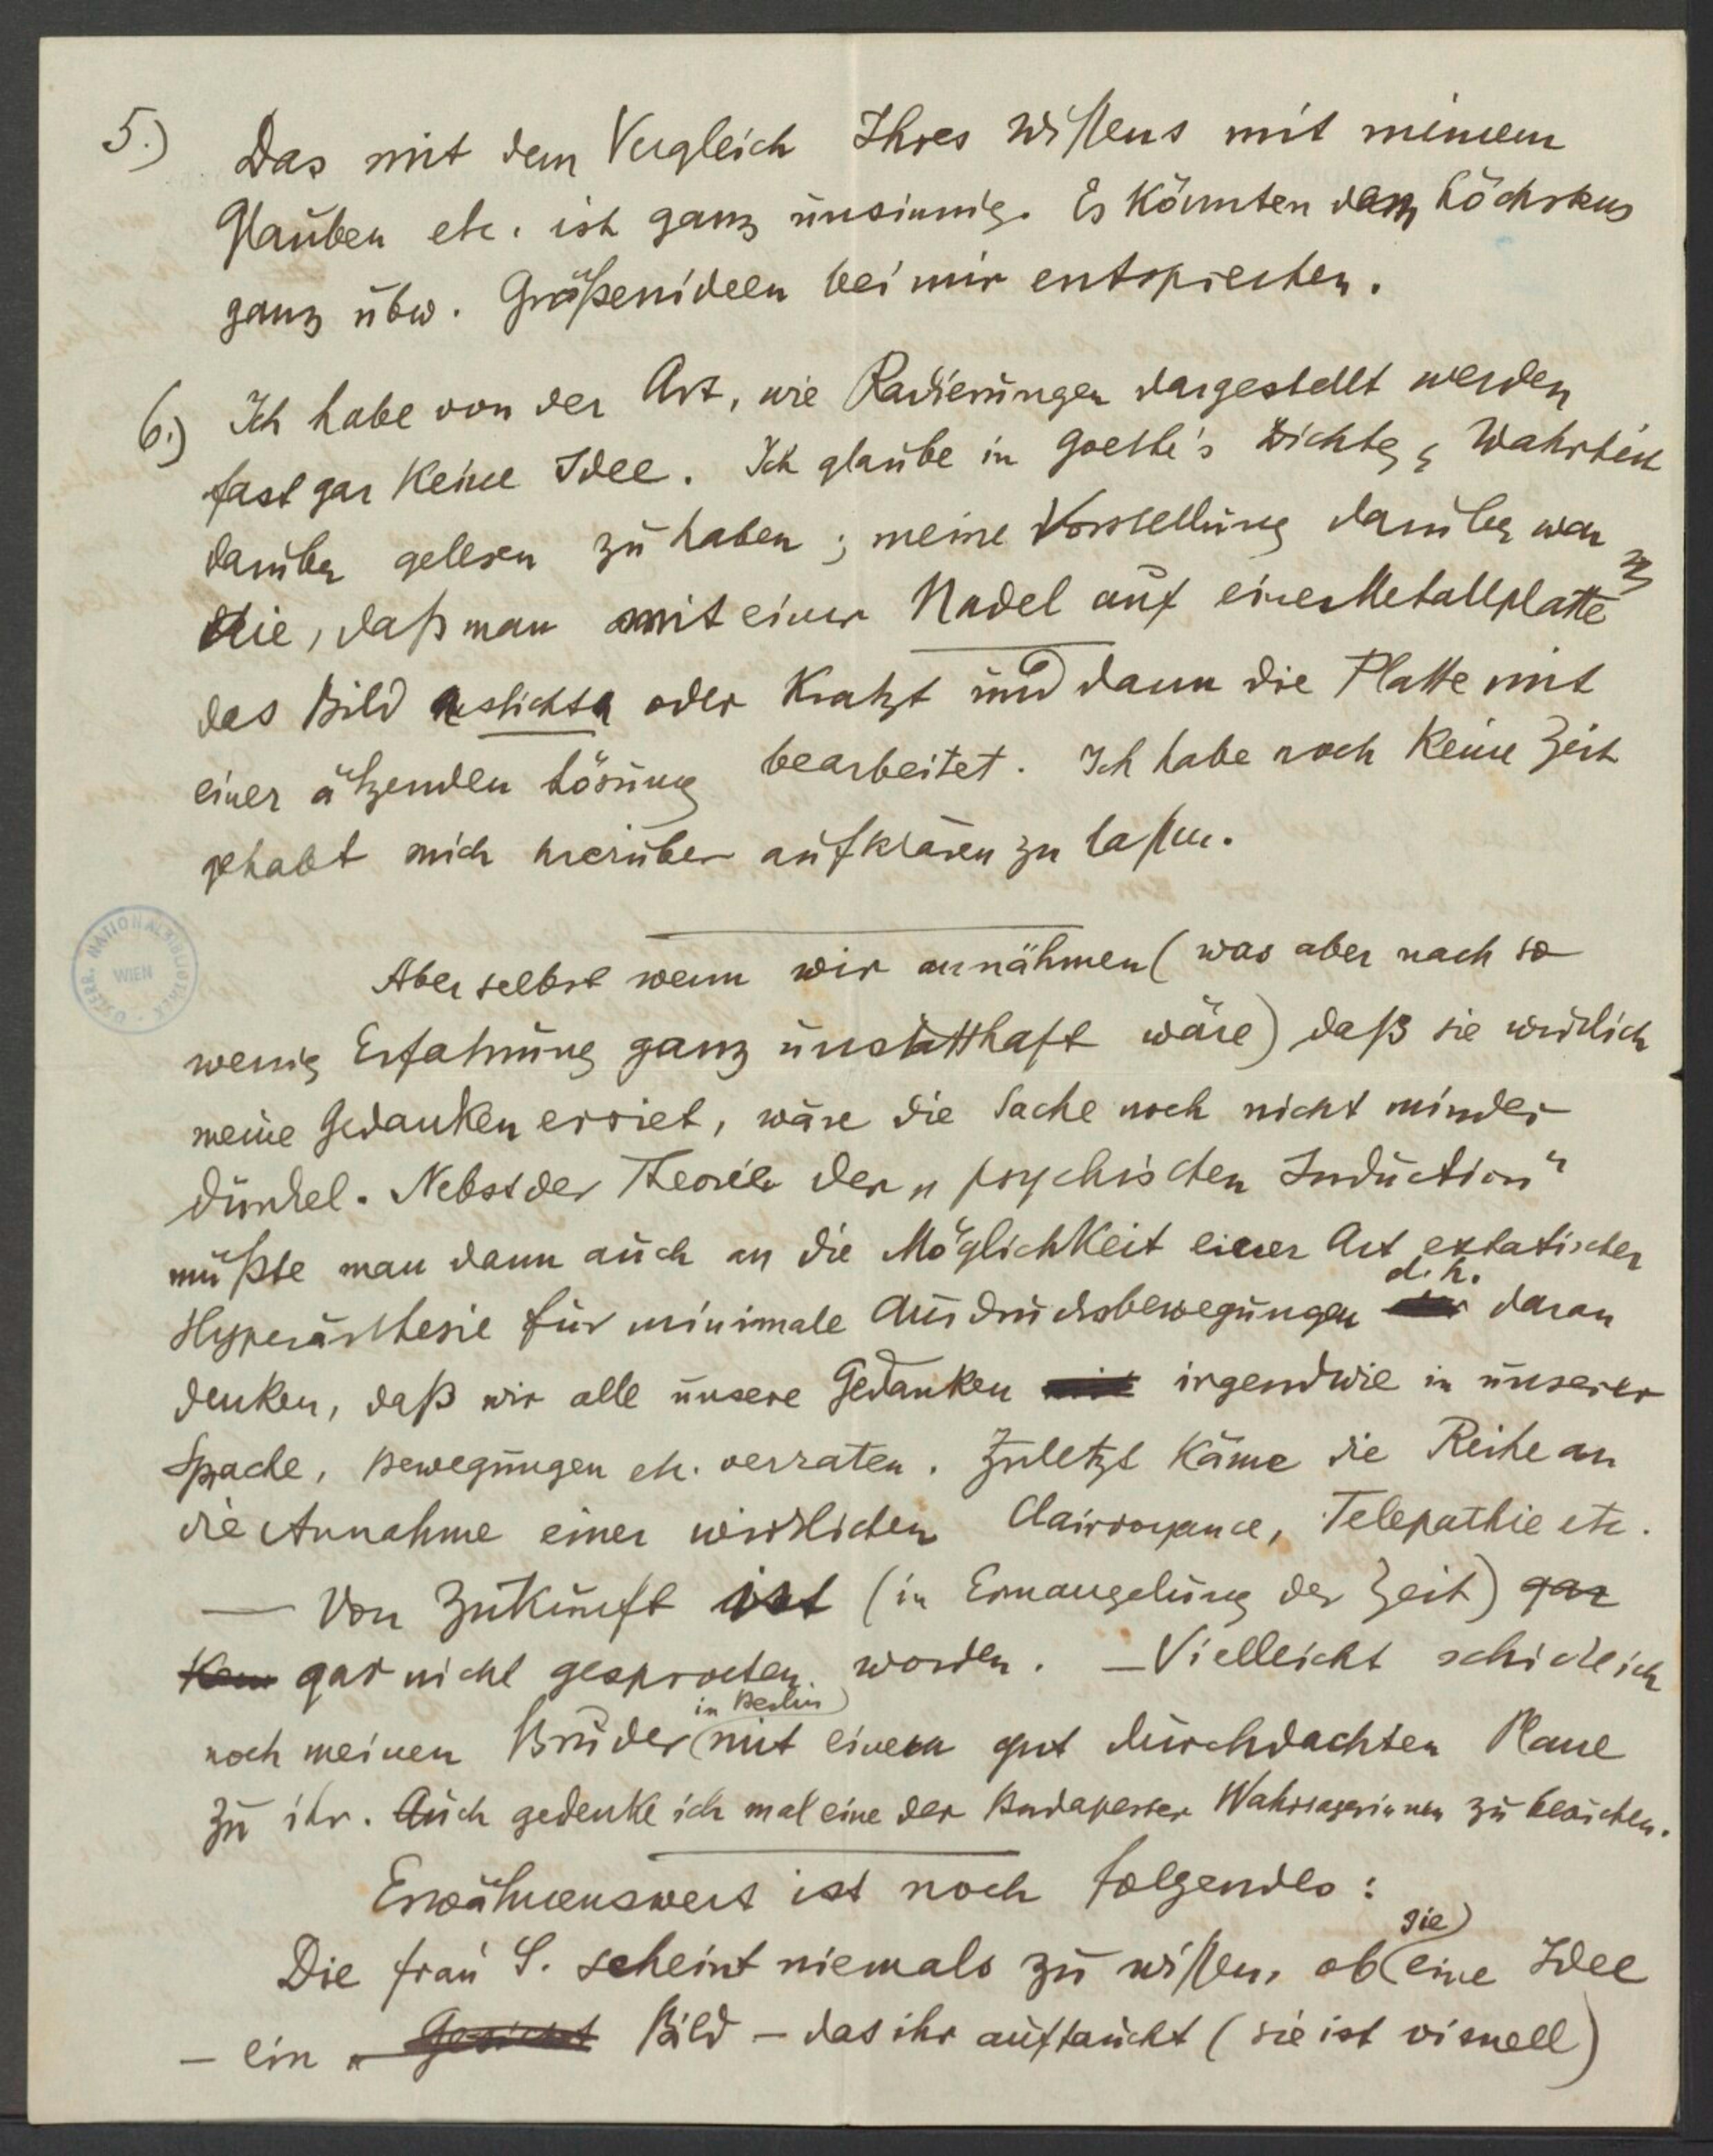 5.) Das mit dem Vergleich Ihres Wissens mit meinem
Glauben etc. ist ganz unsinnig. Es könnten dem höchstens
ganz ubw. Größenideen bei mir entsprechen.
6.) Ich habe von der Art, wie Radierungen dargestellt werden
fast gar keine Idee. Ich glaube in Goethe's Dichtg & Wahrheit
darüber gelesen zu haben; meine Vorstellung darüber war
die, daß man mit einer Nadel auf einer Metallplatte
das Bild sticht oder kratzt und dann die Platte mit
einer ätzenden Lösung bearbeitet. Ich habe noch keine Zeit
gehabt mich hierüber aufklären zu lassen.
Aber selbst wenn wir annähmen (was aber nach so
wenig Erfahrung ganz unstatthaft wäre) daß sie wirklich
meine Gedanken erriet, wäre die Sache noch nicht minder
dunkel. Nebst der Theorie der „psychischen Induction“
müßte man dann auch an die Möglichkeit einer Art extatischer
Hyperästhesie für minimale Ausdrucksbewegungen d.h. daran
denken, daß wir alle unsere Gedanken irgendwie in unserer
Sprache, Bewegungen etc. verraten. Zuletzt käme die Reihe an
die Annahme einer wirklichen Clairvoyance, Telepathie etc.
— Von Zukunft ist (in Ermangelung der Zeit) gar
gar nicht gesprochen worden. — Vielleicht schicke ich
noch meinen Bruder (in Berlin) mit einem gut durchdachten Plane
zu ihr. Auch gedenke ich mal eine der Budapester Wahrsagerinnen zu besuchen.
Erwähnenswert ist noch folgendes:
Die Frau S. scheint niemals zu wissen, ob sie eine Idee
– ein Gesicht Bild – das ihr auftaucht (sie ist visuell)
ÖSTERR. NATIONALBIBLIOTHEK WIEN